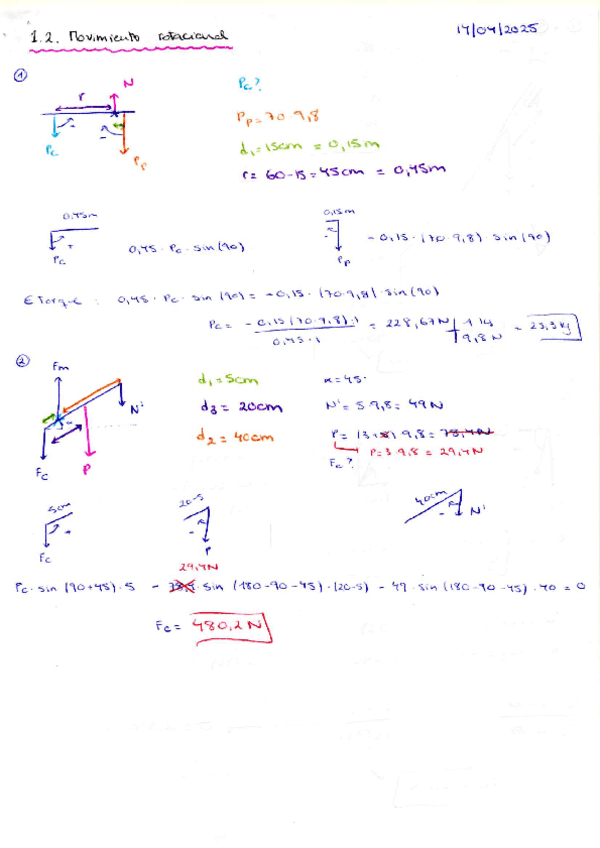 1.2. Movimiento rotacional
14/04/2025
①
N
r
Pc
Pp
Pc?
Pp = 70·9,8
d₁ = 15cm = 0,15m
r = 60-15 = 45cm = 0,45m
0,45m
Pc
0,45 · Pc · sin(90)
0,15m
Pp
- 0,15 · (70·9,8) · sin(90)
Torque : 0,45 · Pc · sin(90) = -0,15 · (70·9,8) · sin(90)
Pc = -0,15(70·9,8)·1 / 0,45·1 = 228,67N | 1 kg / 9,8 N = 23,3 kg
②
Fm
N'
Fc
P
d₁ = 5cm
d3 = 20cm
d2 = 40cm
α = 45°
N' = 5·9,8 = 49N
P = (3+5) 9,8 = 78,4N
P = 3·9,8 = 29,4N
Fc?
5cm
Fc
20-5
P
40cm
N'
29,4N
Fc · sin (90+45) · 5 - 78,4 · sin (180-90-45) · (20-5) - 49 · sin (180-90-45) · 40 = 0
Fc = 480,2 N